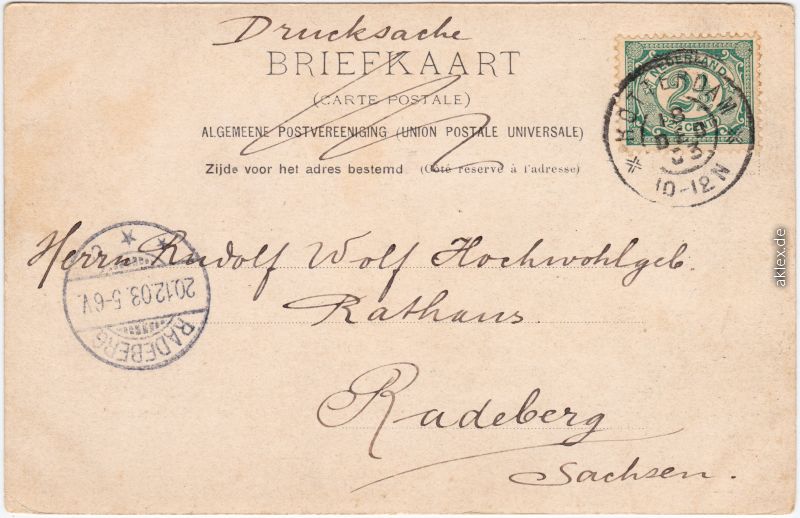 Drucksache
BRIEFKAART
(CARTE POSTALE)
ALGEMEENE POSTVEREENIGING (UNION POSTALE UNIVERSALE)
Zijde voor het adres bestemd (Côté réservé à l'adresse)
NEDERLAND
2½
CENT
10-12N
Herrn Rudolf Wolf Hochwohlgeb.
Rathaus.
Radeberg
Sachsen.
20.12.03. 5-6V.
RADEBERG
aklex.de